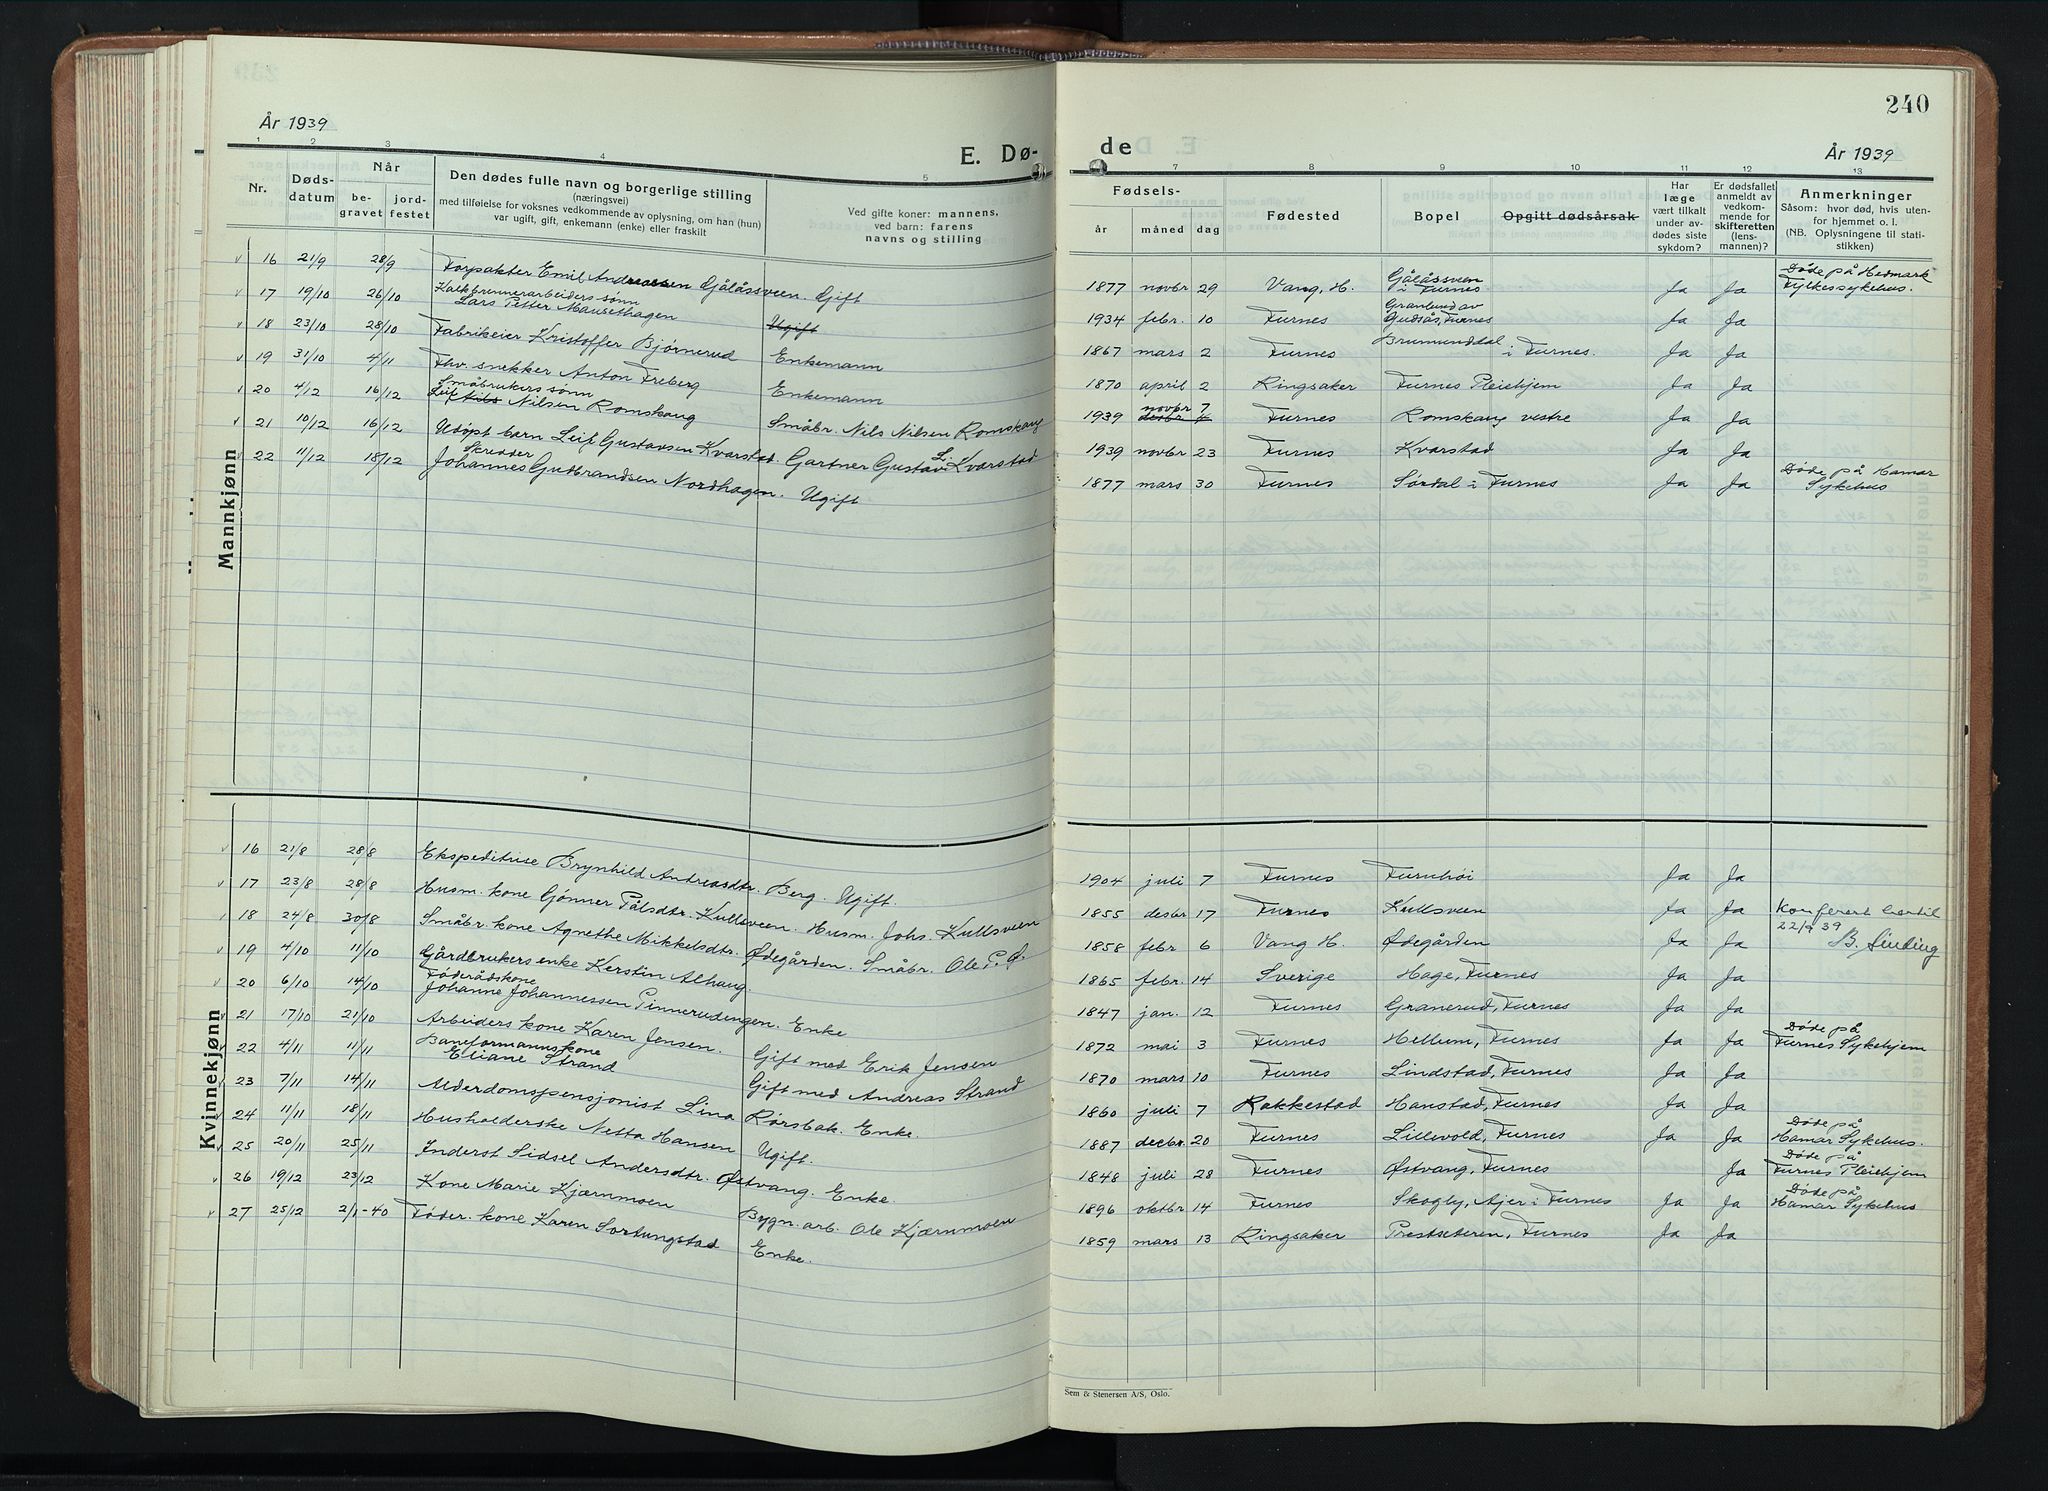 240
År 1939
År 1939
E. Dø-
de
1 2 3 4 5
7 8 9 10 11 12 13
Nr.
Døds-
datum
Når
be-
gravet
jord-
festet
Den dødes fulle navn og borgerlige stilling
(næringsvei)
med tilføielse for voksnes vedkommende av oplysning, om han (hun)
var ugift, gift, enkemann (enke) eller fraskilt
Ved gifte koner: mannens,
ved barn: farens
navns og stilling
Fødsels-
år måned dag
Fødested
Bopel
Opgitt dødsårsak
Har
læge
vært tilkalt
under av-
dødes siste
sykdom?
Er dødsfallet
anmeldt av
vedkom-
mende for
skifteretten
(lens-
mannen)?
Anmerkninger
Såsom: hvor død, hvis uten-
for hjemmet o. l.
(NB. Oplysningene til stati-
stikken)
Mannkjønn
16 21/9 28/9 Forpakter Emil Andreassen Gålåsveen. Gift 1877 novbr 29 Vang, H. Gålåsveen i Furnes Ja Ja Døde på Hedmark Fylkessykehus.
17 19/10 26/10 Kalkbrennerarbeiders sønn Lars Petter Mausethagen Ugift 1934 febr. 10 Furnes Granlund av Gudsås, Furnes Ja Ja
18 23/10 28/10 Fabrikeier Kristoffer Bjørnerud Enkemann 1867 mars 2 Furnes Brumunddal i Furnes. Ja Ja
19 31/10 4/11 Fhv. snekker Anton Freberg Enkemann 1870 april 2 Ringsaker Furnes Pleiehjem Ja Ja
20 4/12 16/12 Småbrukers sønn Leif Nils Nilsen Romskaug Småbr. Nils Nilsen Romskaug 1939 novbr 7 desbr 4 Furnes Romskaug vestre Ja Ja
21 10/12 16/12 Udøpt barn Leif Gustavsen Kvarstad. Gartner Gustav L. Kvarstad 1939 novbr 23 Furnes Kvarstad Ja Ja
22 11/12 18/12 Skredder Johannes Gudbrandsen Nordhagen. Ugift 1877 mars 30 Furnes Sørdal i Furnes Ja Ja Døde på Hamar Sykehus
Kvinnekjønn
16 21/8 28/8 Ekspeditrise Brynhild Andreasdtr. Berg. Ugift. 1904 juli 7 Furnes Furuhøi Ja Ja
17 23/8 28/8 Husm. kone Gønner Pålsdtr. Kullsveen. Husm. Johs. Kullsveen 1855 desbr 17 Furnes Kullsveen Ja Ja Konferert hertil
18 24/8 30/8 Småbr. kone Agnethe Mikkelsdtr. Ødegården. Småbr. Ole P. Ø. 1858 febr 6 Vang H. Ødegården Ja Ja 22/9 39 B. Sinding
19 4/10 11/10 Gårdbrukers enke Kerstin Alhaug. 1865 febr. 14 Sverige Hage, Furnes Ja Ja
20 6/10 14/10 Føderådskone Johanne Johannessen Pinnerudengen. Enke 1847 jan. 12 Furnes Granerud, Furnes Ja Ja
21 17/10 21/10 Arbeiders kone Karen Jensen. Gift med Erik Jensen 1872 mai 3 Furnes Hellum, Furnes Ja Ja Døde på Furnes Sykehjem
22 4/11 11/11 Baneformannskone Eliane Strand Gift med Andreas Strand 1870 mars 10 Furnes Lindstad, Furnes Ja Ja
23 7/11 14/11 Alderdomspensjonist Lina Rørsbak. Enke. 1860 juli 7 Rakkestad Hanstad, Furnes Ja Ja
24 11/11 18/11 Husholderske Netta Hansen Ugift. 1887 decbr. 20 Furnes Lillevold, Furnes Ja Ja Døde på Hamar Sykehus.
25 20/11 25/11 Inderst Sidsel Andersdtr. Østvang. Enke. 1848 juli 28 Furnes Østvang, Furnes Ja Døde på Furnes Pleiehjem
26 19/12 23/12 Kone Marie Kjærnmoen Bygn. arb. Ole Kjærnmoen 1896 oktbr 14 Furnes Skogly, Ajer i Furnes Ja Ja Døde på Hamar Sykehus
27 25/12 2/1-40 Føder. kone Karen Sortungstad Enke. 1859 mars 13 Ringsaker Prestseteren, Furnes Ja Ja
Sem & Stenersen A/S, Oslo.